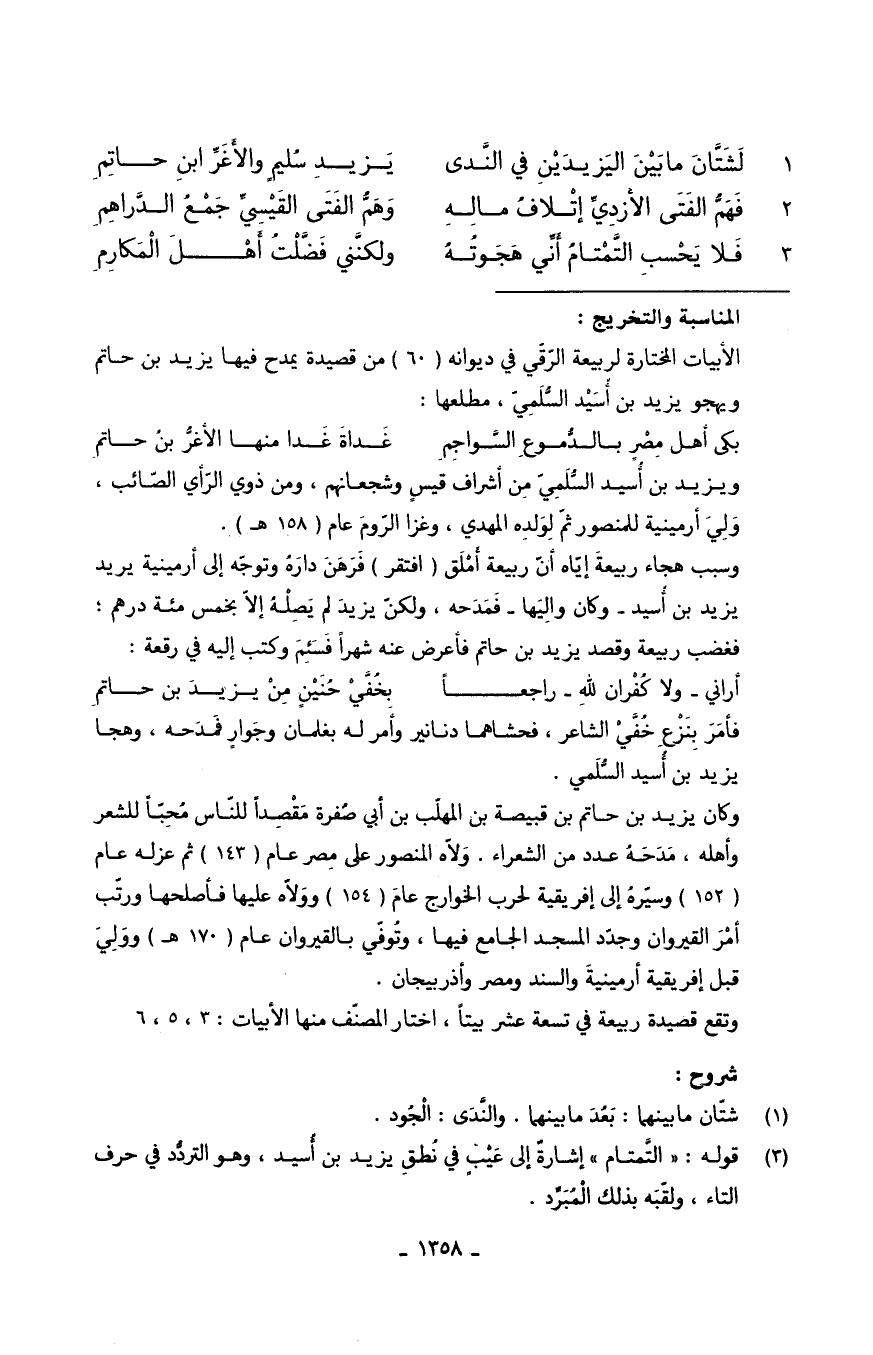 ١ لَشَتَّانَ مابَيْنَ اليَزيدَيْنِ في النَّدى يَزيدِ سُليمٍ والأغَرِّ ابنِ حاتِمِ
٢ فَهَمُّ الفَتَى الأزديِّ إتْلافُ مالِهِ وَهَمُّ الفَتَى القَيْسيِّ جَمْعُ الدَّراهِمِ
٣ فَلا يَحْسبِ التَّمْتامُ أنِّي هَجَوتُهُ ولكنَّني فَضَّلْتُ أهْلَ الْمَكارِمِ
المناسبة والتخريج :
الأبيات المختارة لربيعة الرّقّي في ديوانه ( ٦٠ ) من قصيدة يمدح فيها يزيد بن حاتم
ويهجو يزيد بن أُسَيْد السُّلَميّ ، مطلعها :
بكى أهل مِصْرٍ بالدُّموعِ السَّواجِمِ غَداةَ غَدا منها الأغرُّ بنُ حاتم
ويزيد بن أُسيد السُّلَميّ مِن أشراف قيسٍ وشجعانهم ، ومن ذوي الرّأي الصّائب ،
وَلِيَ أرمينية للمنصور ثمّ لِوَلده المهدي ، وغزا الرّومَ عام ( ١٥٨ هـ ) .
وسبب هجاء ربيعةَ إيّاه أنّ ربيعة أمْلَق ( افتقر ) فَرَهَنَ دارَهُ وتوجّه إلى أرمينية يريد
يزيد بن أُسيد ـ وكان واليَها ـ فَمَدَحه ، ولكنّ يزيدَ لم يَصِلْهُ إلاّ بخمس مئة درهم ؛
فغضب ربيعة وقصد يزيد بن حاتم فأعرض عنه شهراً فَسَئِمَ وكتب إليه في رقعة :
أراني ـ ولا كُفْران للهِ ـ راجعاً بِخُفَّيْ حُنَيْنٍ مِنْ يزيدَ بن حاتم
فأمَرَ بِنَزْعِ خُفَّيْ الشاعر ، فحشاهما دنانير وأمر له بغلمان وجَوارٍ فمَدَحه ، وهجا
يزيد بن أُسيد السُّلَمي .
وكان يزيد بن حاتم بن قبيصة بن المهلّب بن أبي صُفرة مَقْصِداً للنّاس مُحِبّاً للشعر
وأهله ، مَدَحَهُ عدد من الشعراء . وَلاّه المنصور على مِصر عام ( ١٤٣ ) ثم عزله عام
( ١٥٢ ) وسيّرهُ إلى إفريقية لحرب الخوارج عامَ ( ١٥٤ ) ووَلاّه عليها فأصلحها ورتّب
أمْرَ القيروان وجدّد المسجد الجامع فيها ، وتُوفّي بالقيروان عام ( ١٧٠ هـ ) ووَلِيَ
قبل إفريقية أرمينيةَ والسند ومصر وأذربيجان .
وتقع قصيدة ربيعة في تسعة عشر بيتاً ، اختار المصنّف منها الأبيات : ٣ ، ٥ ، ٦
شروح :
(١) شتّان مابينهما : بَعُدَ مابينهما . والنَّدَى : الْجُود .
(٣) قوله : « التَّمتام » إشارةٌ إلى عَيْبٍ في نُطقِ يزيد بن أُسيد ، وهو التردُّد في حرف
التاء ، ولقّبَه بذلك الْمُبَرَّد .
ـ ١٣٥٨ ـ